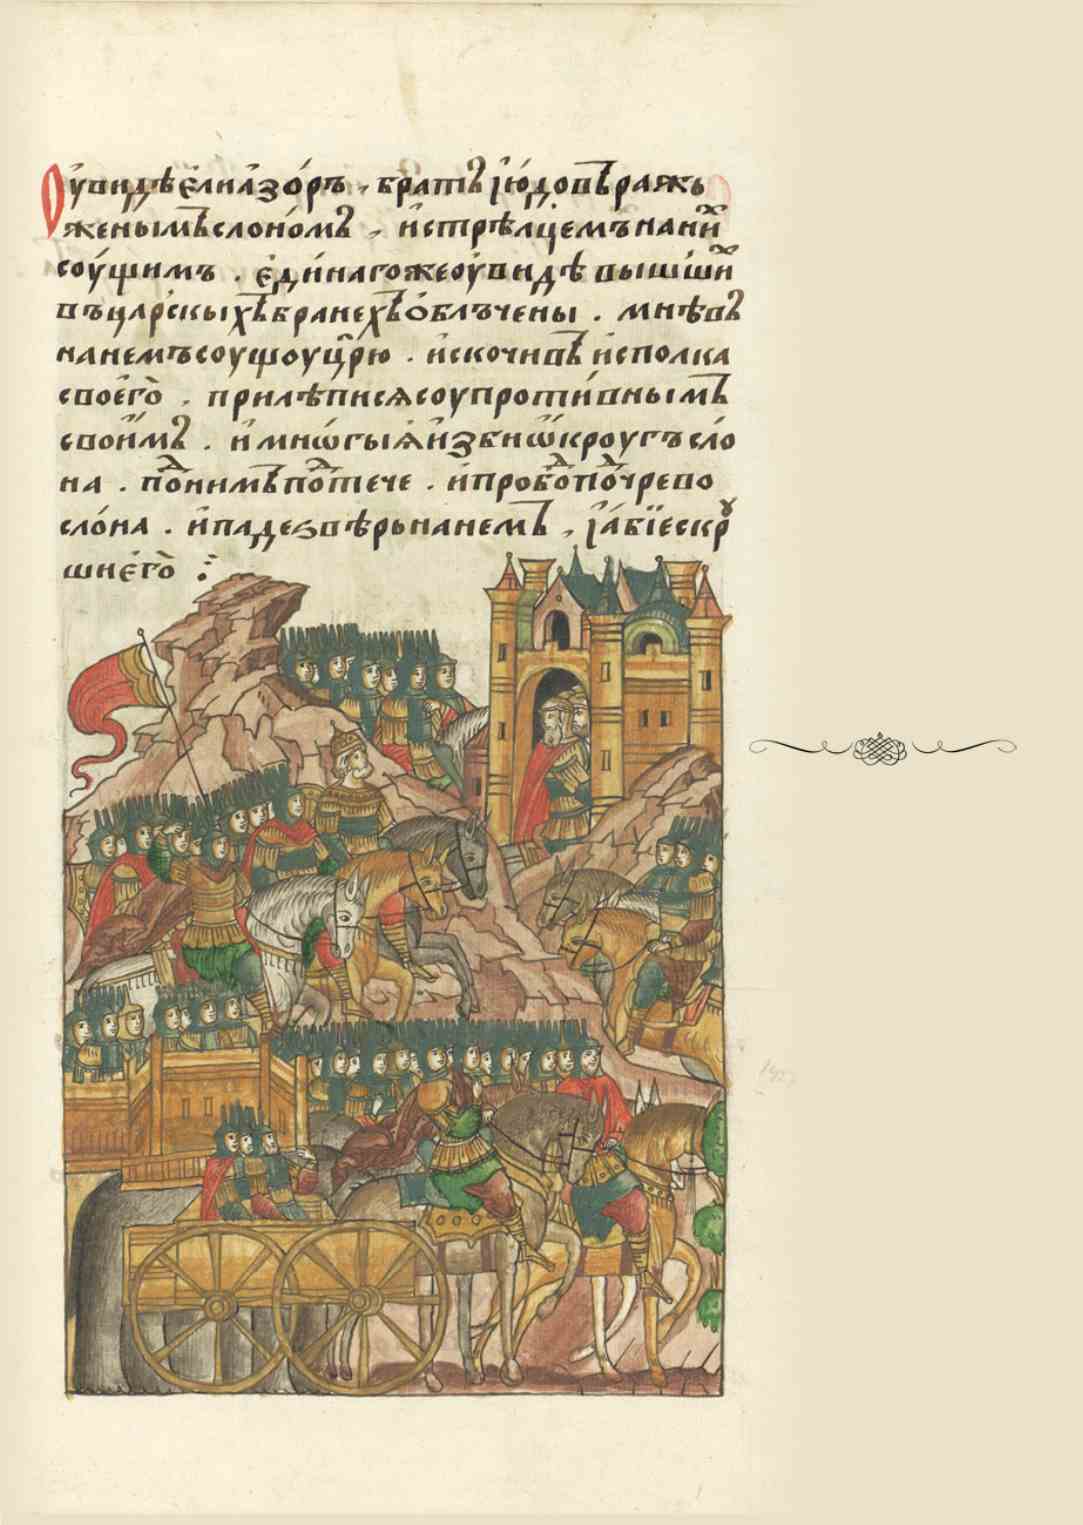 Оувидѣ елиазоръ , братъ июдовъ раяжь
женымъ слономъ , и стрѣлцемъ на ни(х)
соущимъ . единаго же оувидѣ вышши(х)
въ царскыхъ бранехъ облъчены . мнѣвъ
на немъ соущоу црю . искочивъ ис полка
своего , прилѣпися соупротивнымъ
своимъ . и мнѡгыя изби ѡкроугъ сло
на . по(д) нимъ по(д)тече . и пробо(д) по(д)чрево
слона . и паде звѣрь на немъ , и абїе скрꙋ
ши его ⁘